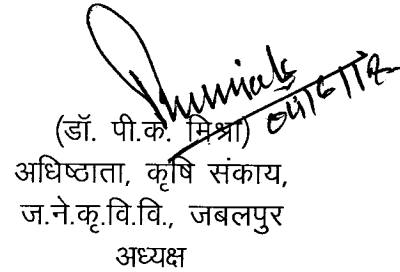 (डॉ. पी.क. मिश्रा)
अधिष्ठाता, कृषि संकाय,
ज.ने.कृ.वि.वि., जबलपुर
अध्यक्ष